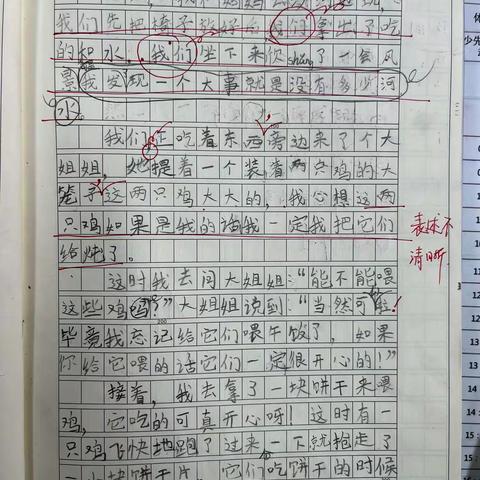 我们先把椅子放好后我们拿出了吃
的和水,我们坐下来欣shǎng了一会风
景我发现一个大事就是没有多少河
水。
我们正吃着东西旁边来了个大
姐姐,她提着一个装着两只鸡的大
笼子这两只鸡大大的,我心想这两
只鸡如果是我的话我一定我把它们
给炖了。
表述不
清晰
这时我去问大姐姐:“能不能喂
这些鸡吗?”大姐姐说到:“当然可
毕竟我忘记给它们喂午饭了,如果
你给它喂的话它们一定很开心的!”
接着,我去拿了一块饼干来喂
鸡,它吃的可真开心呀!这时有一
只鸡飞快地跑了过来一下就抢走了
一小块饼干片,它们吃饼干的时候